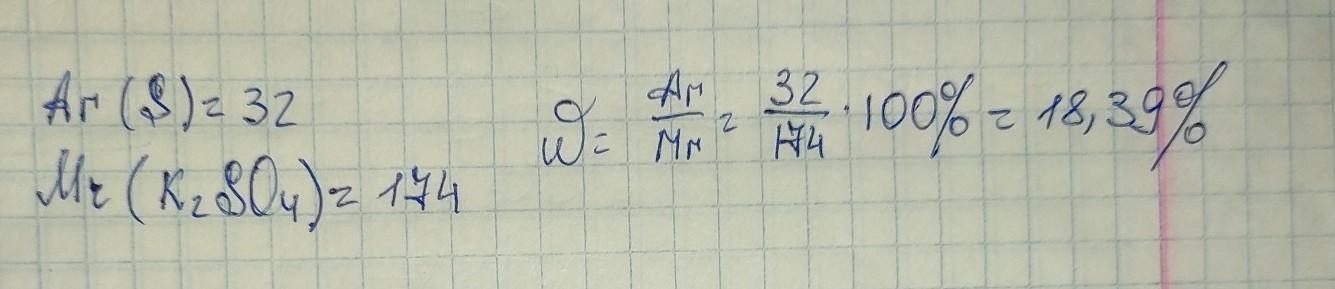 Ar (S) = 32
Mr (K₂SO₄) = 174
ω = Ar/Mr = 32/174 · 100% = 18,39%